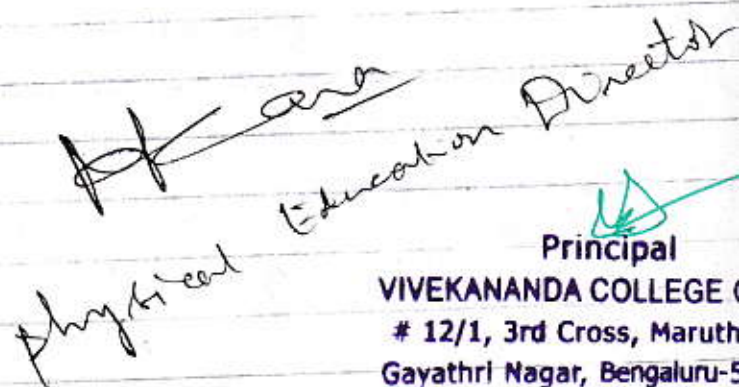 Physical Education Director
Principal
VIVEKANANDA COLLEGE
# 12/1, 3rd Cross, Maruth
Gayathri Nagar, Bengaluru-5